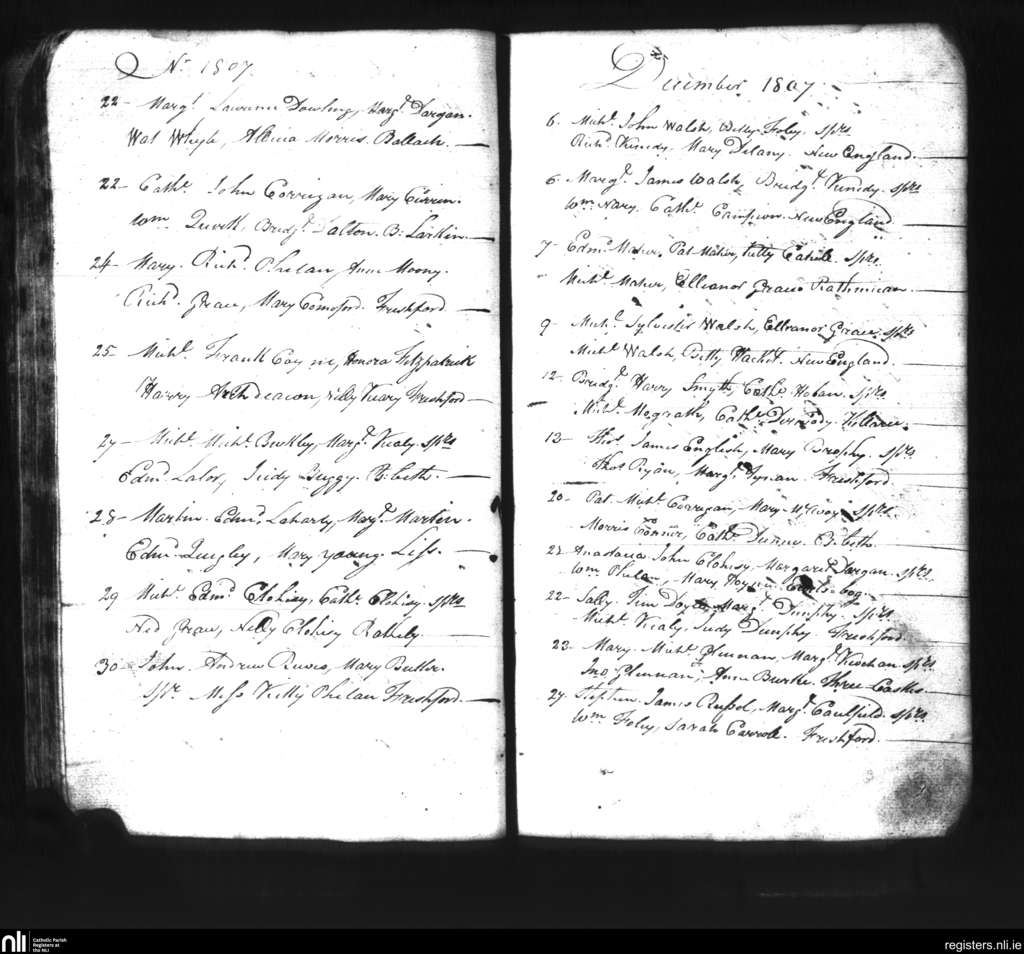 Nr. 1807.
22- Margt. Lawrence Dowling, Margt. Dargan.
Wat Whyle, Morris Ballach.
22- Cathe. John Corrigan, Mary Curren.
Wm. Bridgt. Dalton. B: Larkin.
24- Mary. Richd. Phelan, Anne Moony.
Richd. Grace, Mary Comoford. Freshford
25- Michl. Frank Coyne, Honora Fitzpatrick
Harry Archdeacon, Nelly Freshford
27- Michl. Michl. Buckley, Margt. Vealy. Sprs
Edmd. Lalor, Judy Duggy. B:beth.
28- Martin. Edmd. Loharty, Margt. Martin.
Edmd. Quigley, Mary young. Liss.
29 Michl. Edmd. Clohisy, Cathe. Clohisy. Sprs
Ned Grace, Nelly Clohisy Rathely.
30- John. Andrew Mary Butler.
Spr. Kitty Phelan Freshford.
December 1807
6. Michl. John Walsh, Betty Foley. Sprs
Richd. Kenedy. Mary Delany. New England.
6. Margt. James Walsh, Bridgt. Kenedy. Sprs
Wm. Nary. Cathe. New England
7- Edmd. Maher. Pat Maher, Kitty Cahill. Sprs.
Michl. Maher, Elleanor Grace Rathmican.
9- Michl. Sylvester Walsh, Elleanor Grace. Sprs
Michl. Walsh, Betty Hacket. New England.
12- Bridgt. Harry Smyth, Cathe. Hoban. Sprs.
Michl. Mcgrath, Cathe. Dermody. Killarea.
13- Thos. James English, Mary Brophy. Sprs
Thos Ryan, Margt. Tynan. Freshford.
20- Pat. Michl. Corrigan, Mary McEvoy. Sprs.
Morris Connor, Cathe. Dunne. B:beth.
21- Anastasia John Clohisy. Margaret Dargan. Sprs.
Wm. Phelan, Mary
22- Sally. Tim Doyle. Margt. Dunphy. Sprs.
Michl. Vealy, Judy Dunphy. Freshford.
23. Mary. Michl. Glennan, Margt. Sprs.
Jno Glennan, Anne Burke. Three Castles.
27- Stephen. James Russel, Margt. Caulfield. Sprs.
Wm. Foley, Sarah Carroll. Freshford.
nli
Catholic Parish
Registers at
the NLI
registers.nli.ie